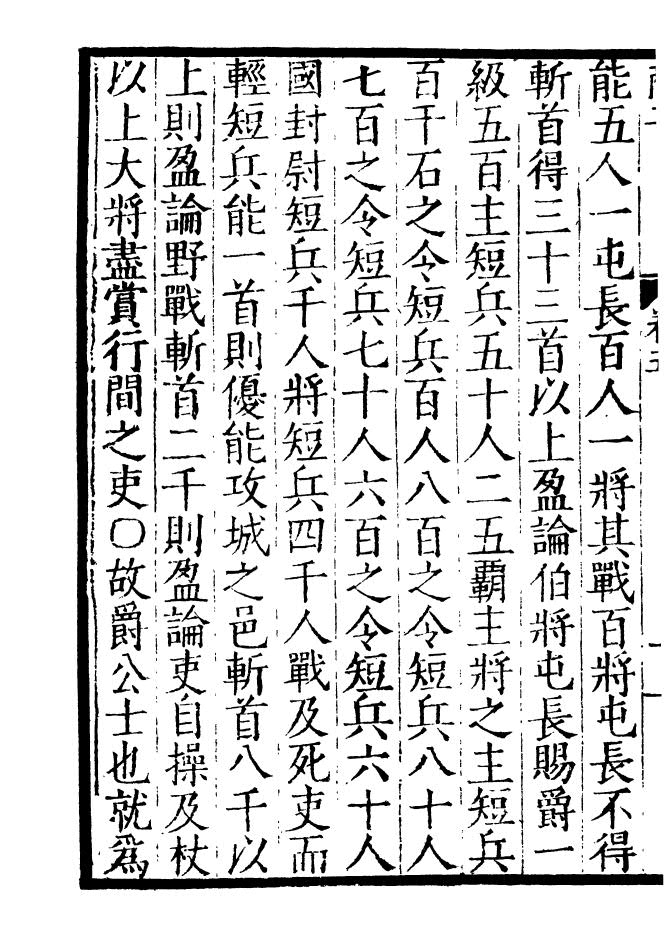 能五人一屯長百人一將其戰百將屯長不得
斬首得三十三首以上盈論伯將屯長賜爵一
級五百主短兵五十人二五霸主將之主短兵
百千石之令短兵百人八百之令短兵八十人
七百之令短兵七十人六百之令短兵六十人
國封尉短兵千人將短兵四千人戰及死吏而
輕短兵能一首則優能攻城之邑斬首八千以
上則盈論野戰斬首二千則盈論吏自操及杖
以上大將盡賞行間之吏〇故爵公士也就爲